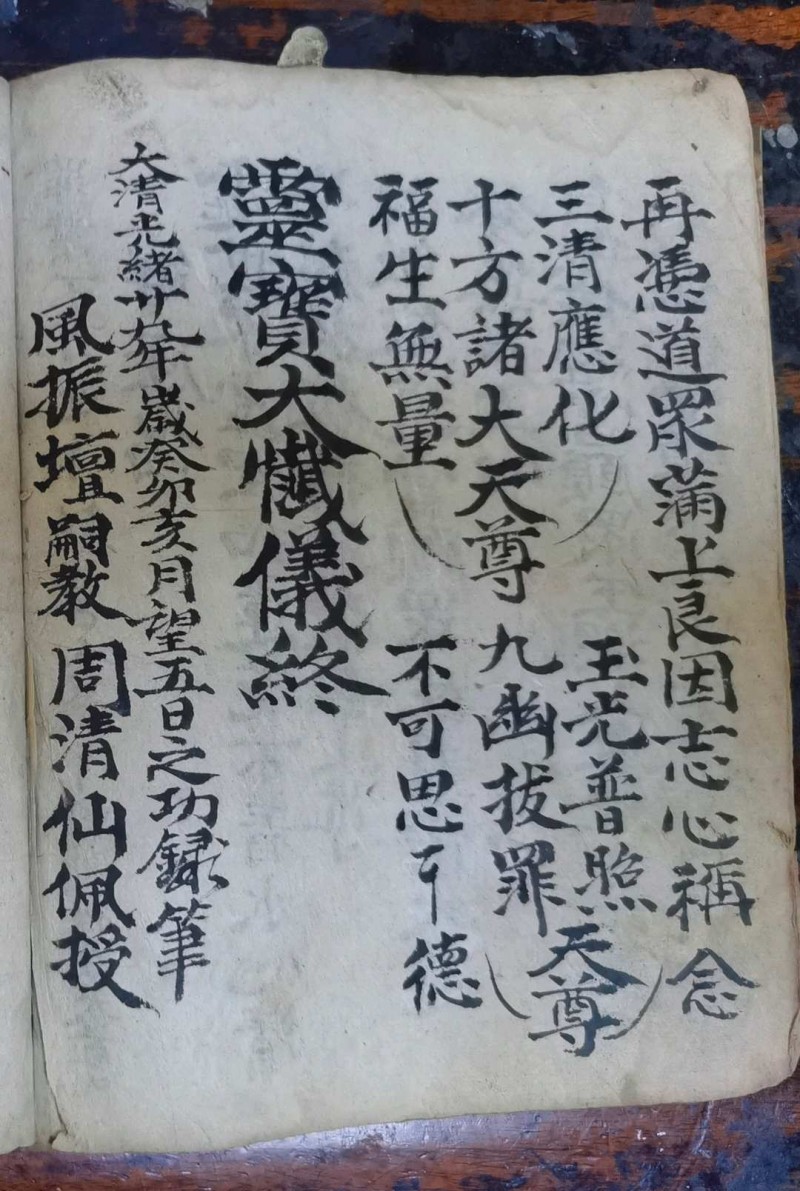 再憑道眾滿上良因志心稱念
三清應化 玉光普照
十方諸大天尊 九幽拔罪天尊
福生無量 不可思 德
靈寶大懺儀終
大清光緒廿九年歲癸卯亥月望五日之功錄筆
風振壇嗣教周清仙佩授